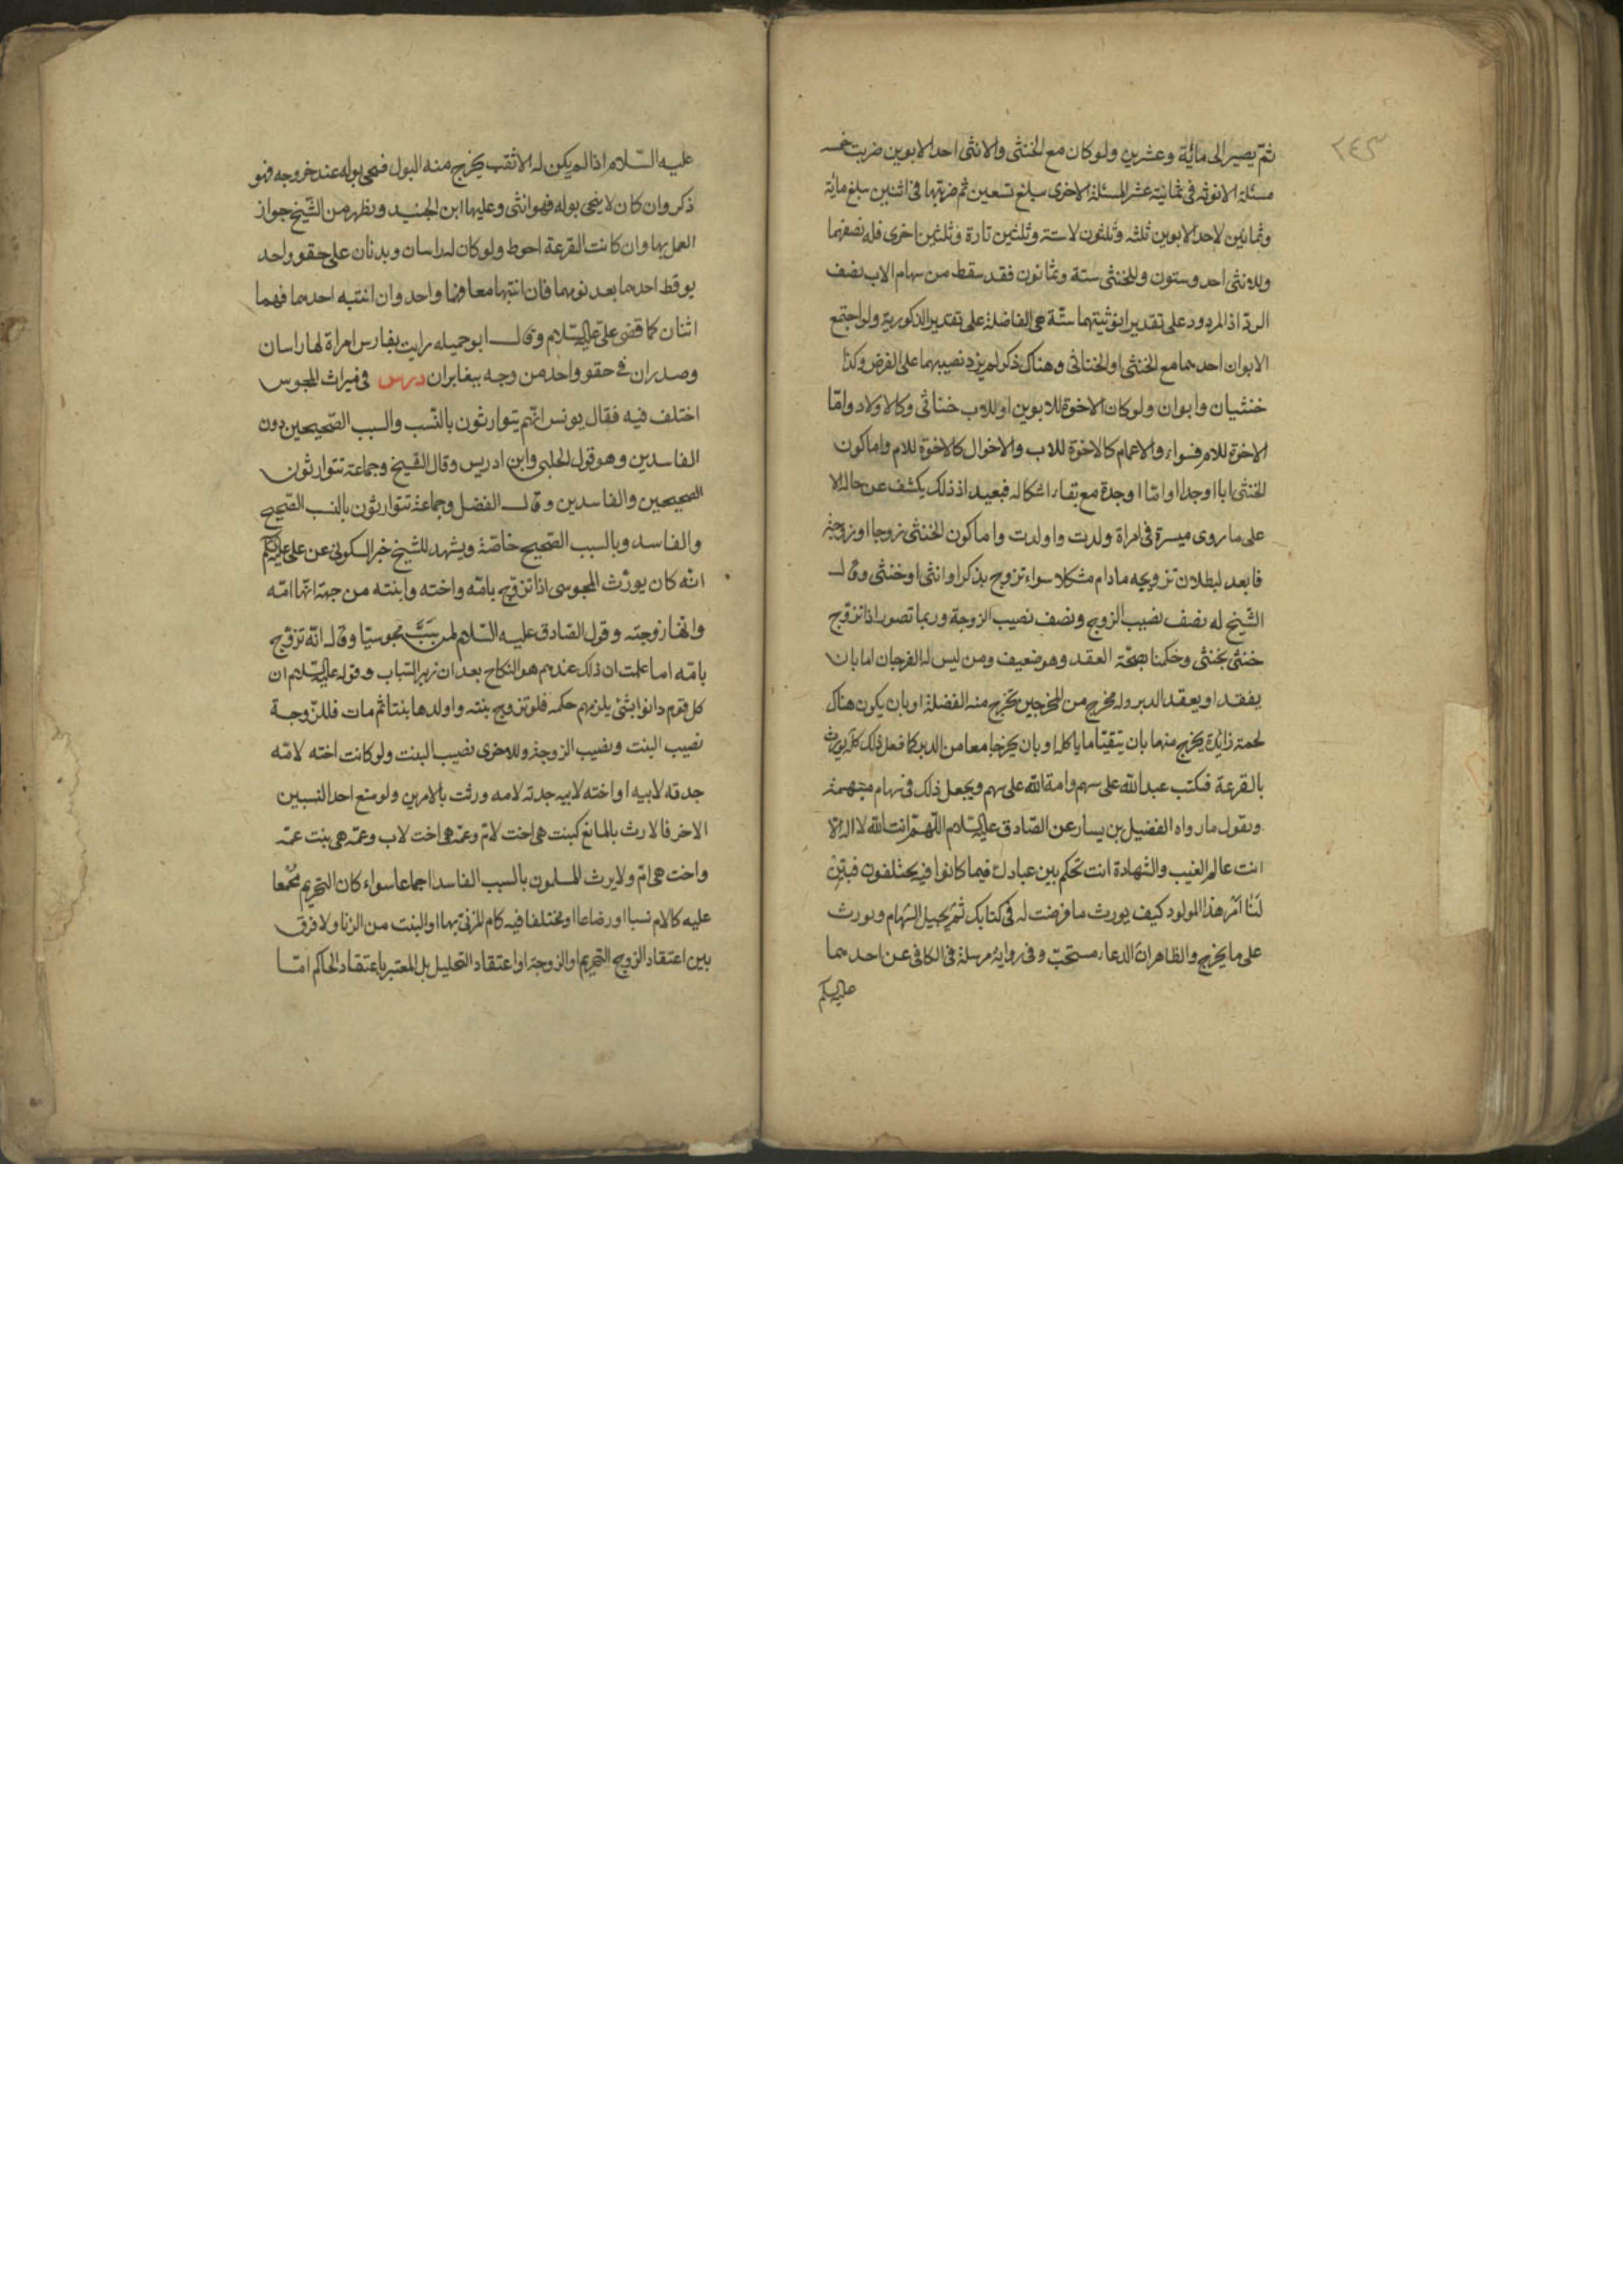 ٢٤٣
ثم يصير الى مائة وعشرين ولو كان مع الخنثى والانثى احد الابوين ضربت خمسه
مسئلة الانوثه في ثمانية عشر المسئلة الاخرى سلغ تسعين ثم ضربتها في اثنين سلغ مائة
وثمانين لاحد الابوين ثلثه وثلثون لاستة وثلثين تارة وثلثين اخرى فله نصفهما
وللانثى احد وستون وللخنثى ستة وثمانون فقد سقط من سهام الاب نصف
الردّ اذ المردود على تقدير انوثيتهما ستّة هي الفاضلة على تقدير الذكورية ولو اجتمع
الابوان احدهما مع الخنثى او الخناثى وهناك ذكر لم يزد نصيبهما على الفرض وكذا
خنثيان وابوان ولو كان الاخوة للابوين او للاب خناثى وكالاولاد وامّا
الاخوة للام فسواء والاعمام كالاخوة للاب والاخوال كالاخوة للام واما كون
الخنثى ابا او جدا او امّا او جدة مع بقاء اشكاله فبعيد اذ ذلك يكشف عن حاله الا
على ما روى ميسرة في امراة ولدت واولدت واما كون الخنثى زوجا او زوجة
فابعد لبطلان تزويجه مادام مشكلا سواء تزوج بذكر او انثى او خنثى وقال
الشيخ له نصف نصيب الزوج ونصف نصيب الزوجة وربما تصور اذا تزوّج
خنثى بخنثى وحكمنا بصحّة العقد وهو ضعيف ومن ليس له الفرجان اما بان
يفقد او يعقد الدبر وله مخرج من المخرجين يخرج منه الفضلة او بان يكون هناك
لحمة زايدة يخرج منها بان يتقيّا ما ياكله او بان يخرجا معا من الدبر كا فعل ذلك كله يورث
بالقرعة فكتب عبد الله على سهم وامة الله على سهم ويجعل ذلك في سهام مبهمة
ويقول ما رواه الفضيل بن يسار عن الصّادق عليه السّلام اللّهمّ انت الله لا اله الا
انت عالم الغيب والشهادة انت تحكم بين عبادك فيما كانوا فيه يختلفون فبيّن
لنا امر هذا المولود كيف يورث ما فرضت له في كتابك ثم يجيل السّهام ويورث
على ما يخرج والظاهر ان الدعاء مستحبّ وفي رواية مرسلة في الكافي عن احدهما
عليه السلم
عليه السّلام اذا لم يكن له الا ثقب يخرج منه البول فنحى بوله عند خروجه فهو
ذكر وان كان لا ينحى بوله فهو انثى وعليها ابن الجنيد ويظهر من الشّيخ جواز
العمل بها وان كانت القرعة احوط ولو كان له راسان وبدنان على حقو واحد
يوقظ احدهما بعد نومهما فان انتبها معا فهما واحد وان انتبه احدهما فهما
اثنان كما قضى علىّ عليه السّلام وقال ابو جميله رايت بفارس امراة لها راسان
وصدران في حقو واحد من وجه بيغايران درس في ميراث المجوس
اختلف فيه فقال يونس انّهم يتوارثون بالنّسب والسبب الصّحيحين دون
الفاسدين وهو قول الحلبى وابن ادريس وقال الشيخ وجماعة تتوارثون
الصحيحين والفاسدين وقال الفضل وجماعة تتوارثون بالنسب الصّحيح
والفاسد وبالسبب الصّحيح خاصّة ويشهد للشّيخ خبر السكونى عن على عليه السلم
انّه كان يورّث المجوسى اذا تزوّج بامّه واخته وابنته من جهة انّها امّه
وانّها زوجته وقول الصّادق عليه السّلام لمن سبّ مجوسيّا وقال انّه تزوّج
بامّه اما علمت ان ذلك عندهم هو النكاح بعد ان زبر السّاب وقوله عليه السّلام ان
كل قوم دانوا بشئ يلزمهم حكمه فلو تزوج بنته واولدها بنتا ثم مات فللزّوجة
نصيب البنت ونصيب الزوجة وللاخرى نصيب البنت ولو كانت اخته لامّه
جدته لابيه او اخته لابيه جدته لامه ورثت بالامرين ولو منع احد النسبين
الاخر فالارث بالمانع كبنت هي اخت لامّ وعمّه هي اخت لاب وعمّه هي بنت عمّه
واخت هي امّ ولا يرث المسلمون بالسبب الفاسد اجماعا سواء كان التحريم مجمعا
عليه كالام نسبا او رضاعا او مختلفا فيه كام المزنىّ بها او البنت من الزنا ولا فرق
بين اعتقاد الزوج التحريم او الزوجة او اعتقاد التحليل بل المعتبر باعتقاد الحاكم امّا